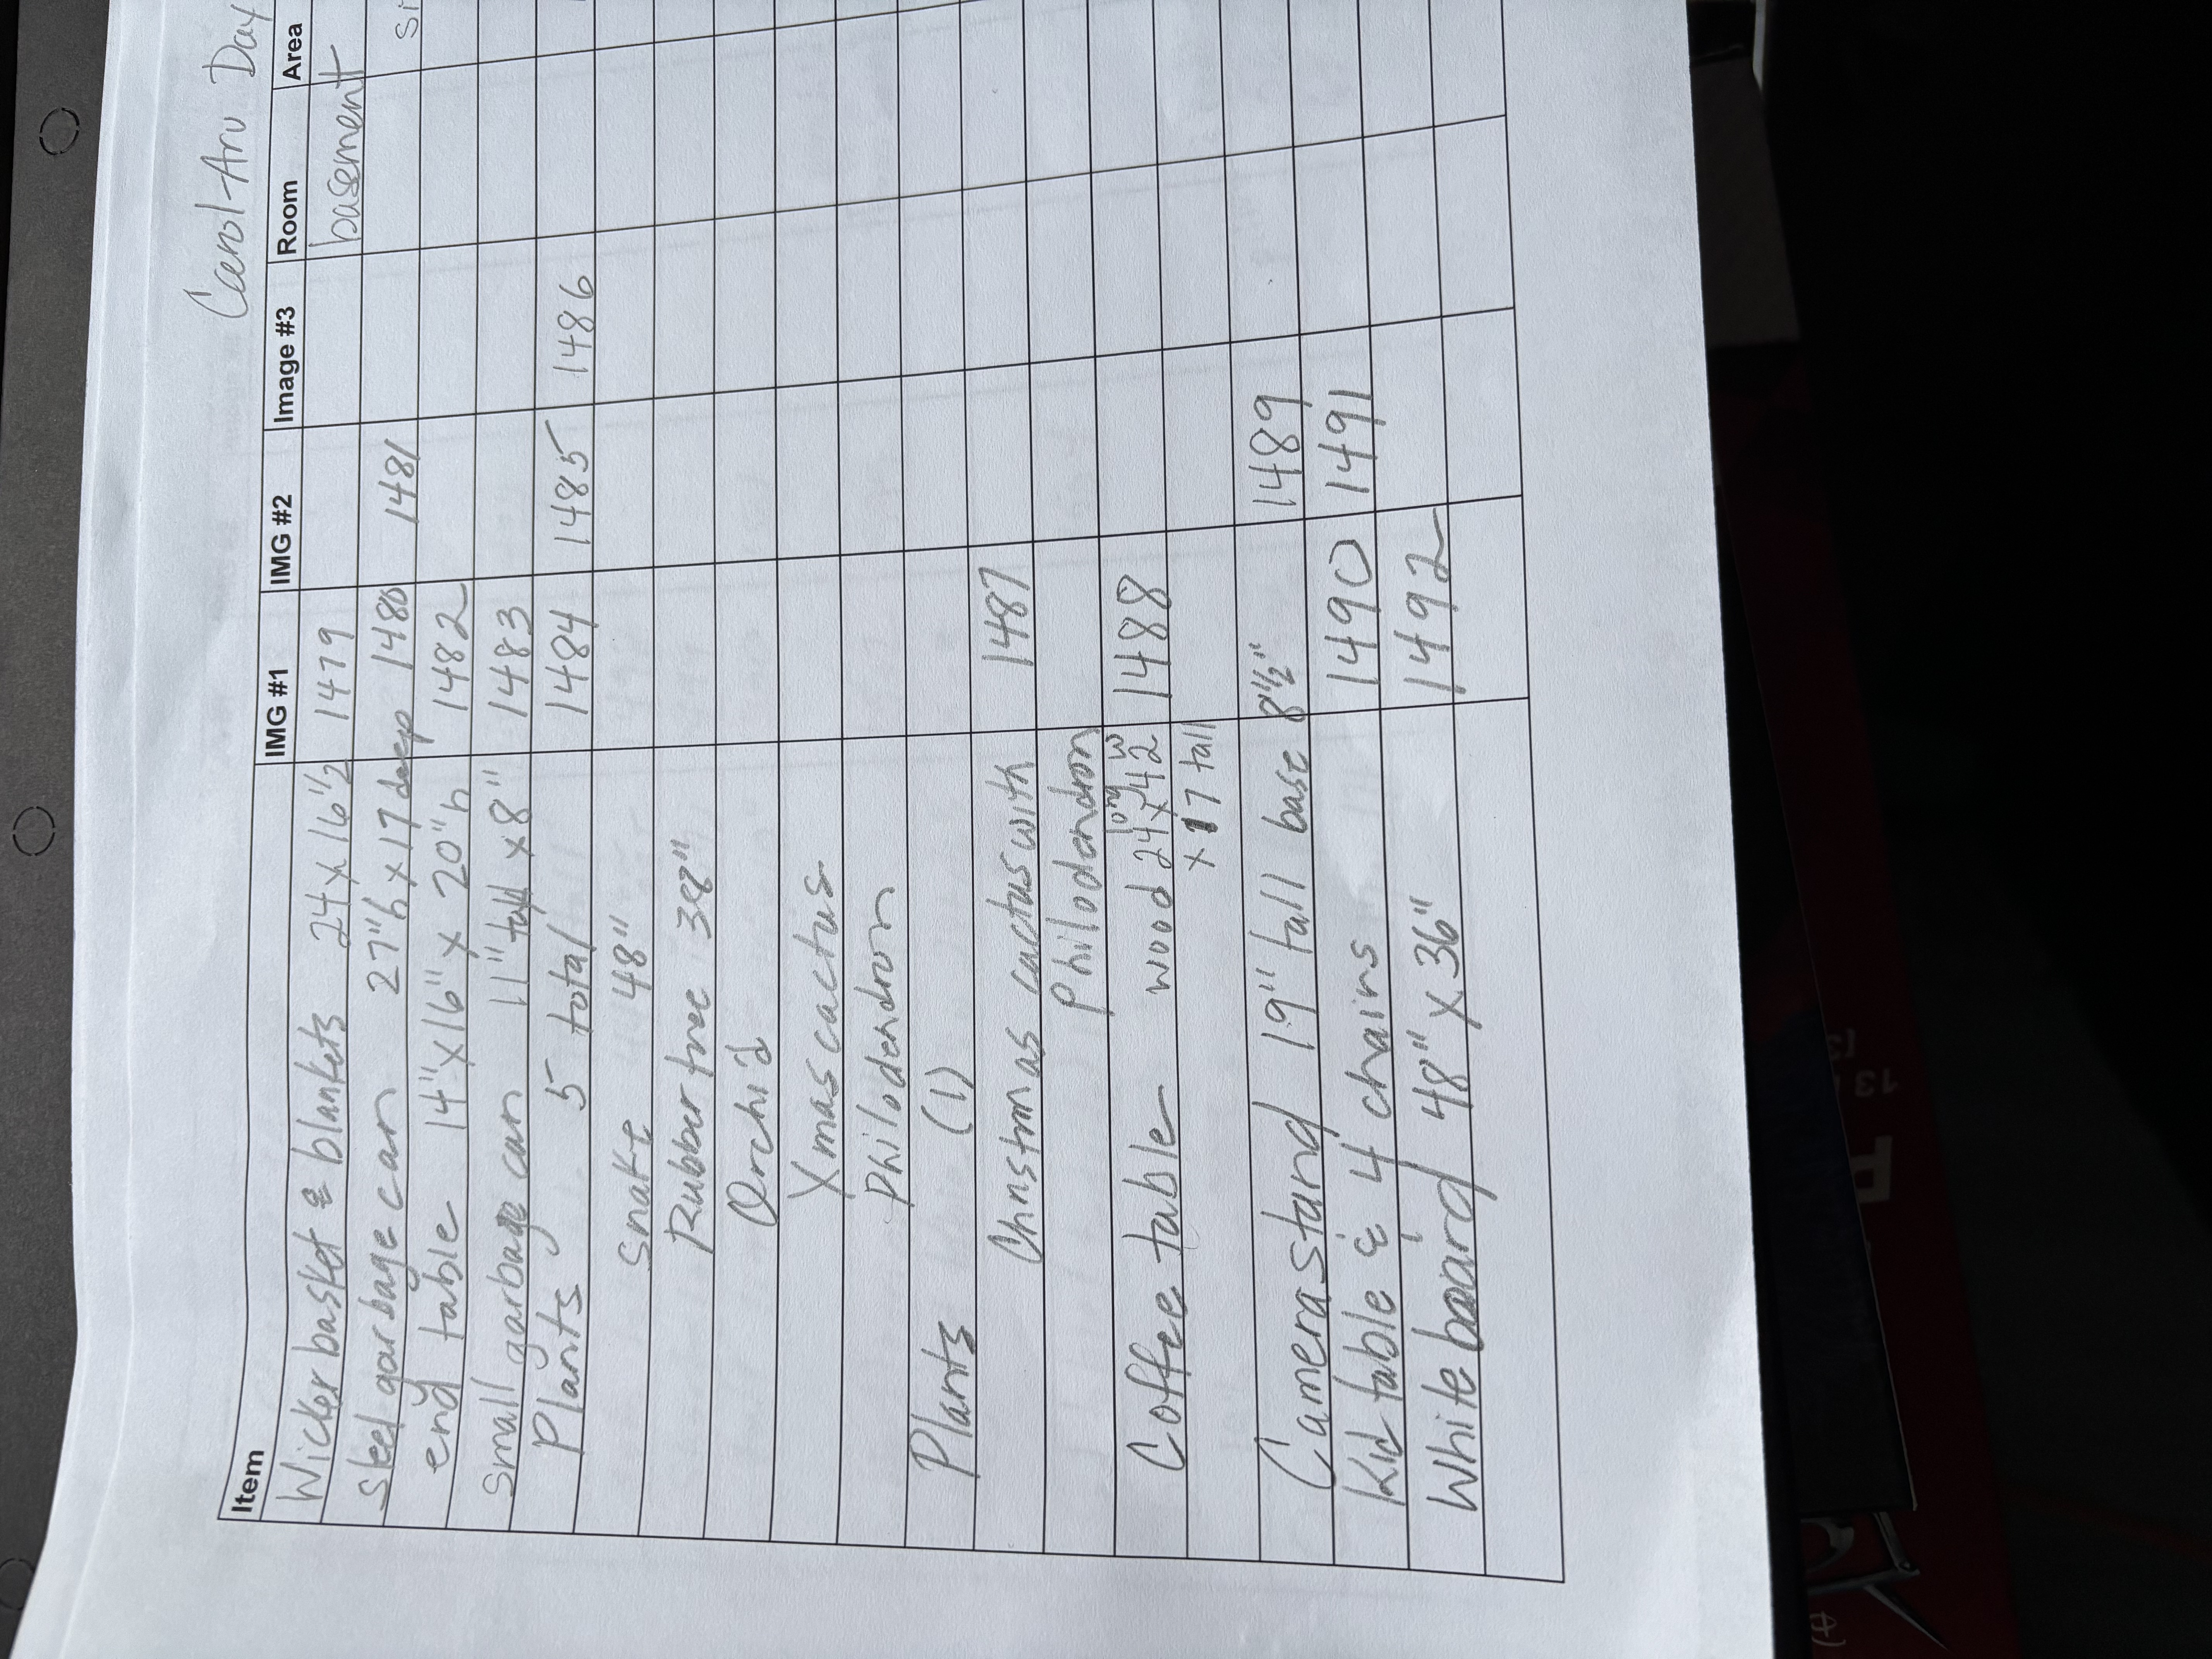 Carol-Ann Day
Item IMG #1 IMG #2 Image #3 Room Area
Wicker basket & blankets 24 x 16 1/2 1479 basement
Steel garbage can 27"h x 17 deep 1480 1481 si
end table 14" x 16" x 20"h 1482
Small garbage can 11" tall x 8" 1483
Plants 5 total 1484 1485 1486
Snake 48"
Rubber tree 38"
Orchid
Xmas cactus
Philodendron
Plants (1)
Christmas cactus with 1487
Philodendron
Coffee table wood 24 long x 42 w 1488
x 17 tall
Camera stand 19" tall base 8 1/2" 1489
Kid table & 4 chairs 1490 1491
White board 48" x 36" 1492
13